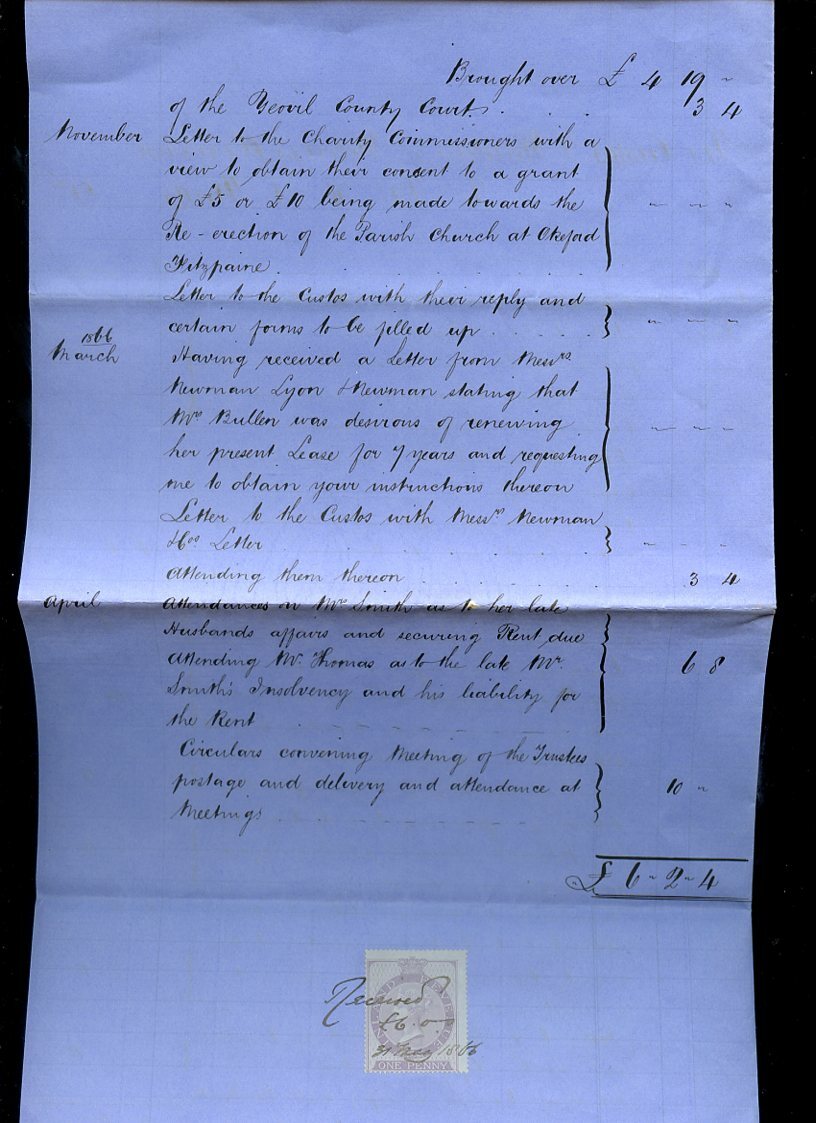 Brought over £ 4 19 "
of the Yeovil County Court . . . 3 4
November Letter to the Charity Commissioners with a
view to obtain their consent to a grant
of £5 or £10 being made towards the " " "
Re-erection of the Parish Church at Okeford
Fitzpaine . . . . .
Letter to the Custos with their reply and
certain forms to be filled up . . . . . " " "
1866
March Having received a Letter from Messrs
Newman Lyon & Newman stating that
Mrs Bullen was desirous of renewing " " "
her present Lease for 7 years and requesting
me to obtain your instructions thereon
Letter to the Custos with Messrs Newman
& Cos Letter . . . . . " " "
Attending them thereon . . . . . 3 4
April Attendances on Mrs Smith as to her late
Husbands affairs and securing Rent due
Attending Mr. Thomas as to the late Mr. 6 8
Smith's Insolvency and his liability for
the Rent
Circulars convening Meeting of the Trustees
postage and delivery and attendance at 10 "
Meetings . . . . .
£ 6 " 2 " 4
INLAND REVENUE
Received
£6.0
31 May 1866
ONE PENNY